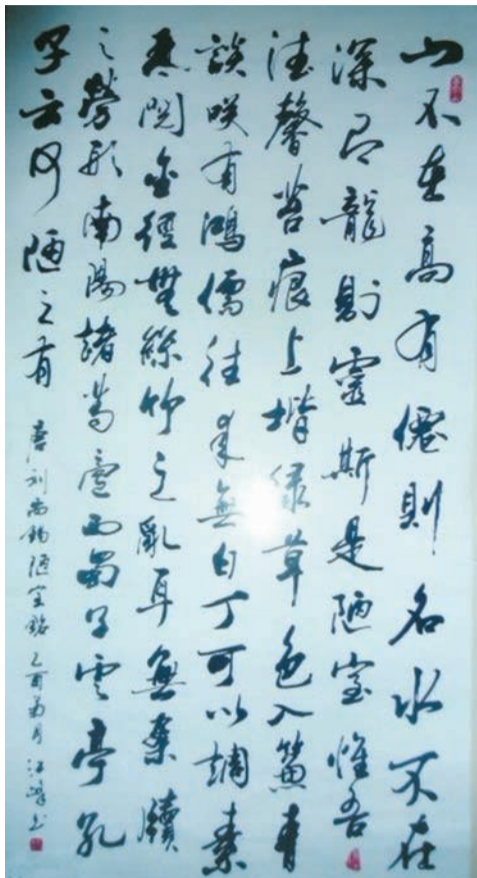 山不在高有僊則名水不在
深龍則靈斯是陋室惟吾
德馨苔痕上堦緑草色入簾青
談咲有鴻儒往来無白丁可以調素
琴閲金經無絲竹之亂耳無案牘
之勞形南陽諸葛廬西蜀子雲亭孔
子云何陋之有 唐刘禹锡陋室銘 乙酉菊月 江峰书